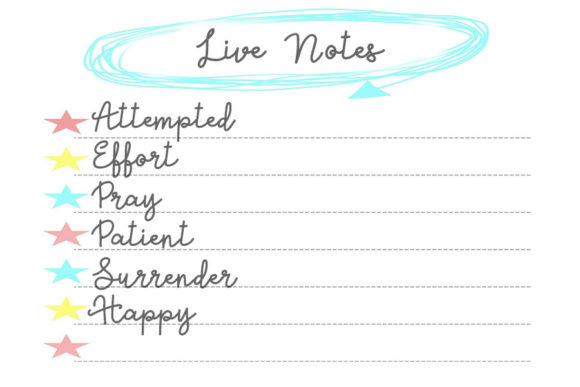 Live Notes
Attempted
Effort
Pray
Patient
Surrender
Happy